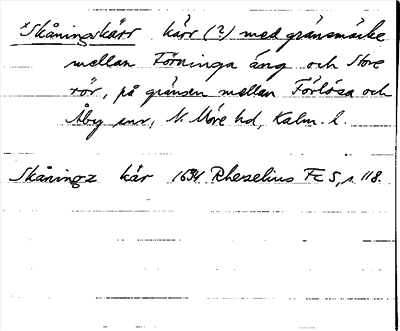 *Skåningskärr kärr (?) med gränsmärke
mellan Förninga äng och Store
rör, på gränsen mellan Förlösa och
Åby snr, N. Möre hd, Kalm. l.
Skåningz kär 1634 Rhezelius Fc 5, s. 118.